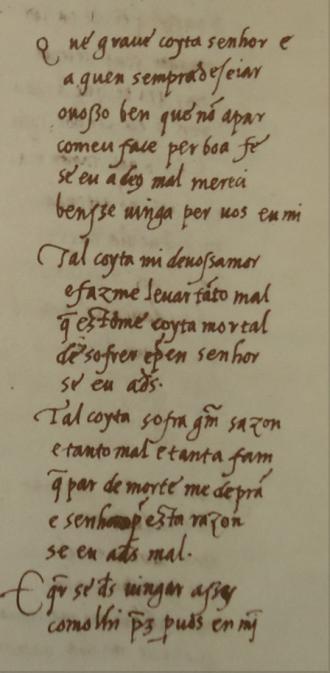 Que graue coyta senhor e
a quen sempra deseiar
ouosso ben que nõ apar
comeu face per boa fe
se eu a ds̃ mal mereci
bensse uinga per uos en mi
Tal coyta mi deuossamor
e fazme leuar tãto mal
q̃ esto me coyta mortal
de sofrer en senhor
se eu a ds̃.
Tal coyta sofra grã sazon
e tanto mal e tanta fam
q̃ par de morte me de prã
e senhor esta razon
se eu a ds̃ mal.
E q̃r se ds̃ uingar assy
como lhi p̃z p uos en mj̃